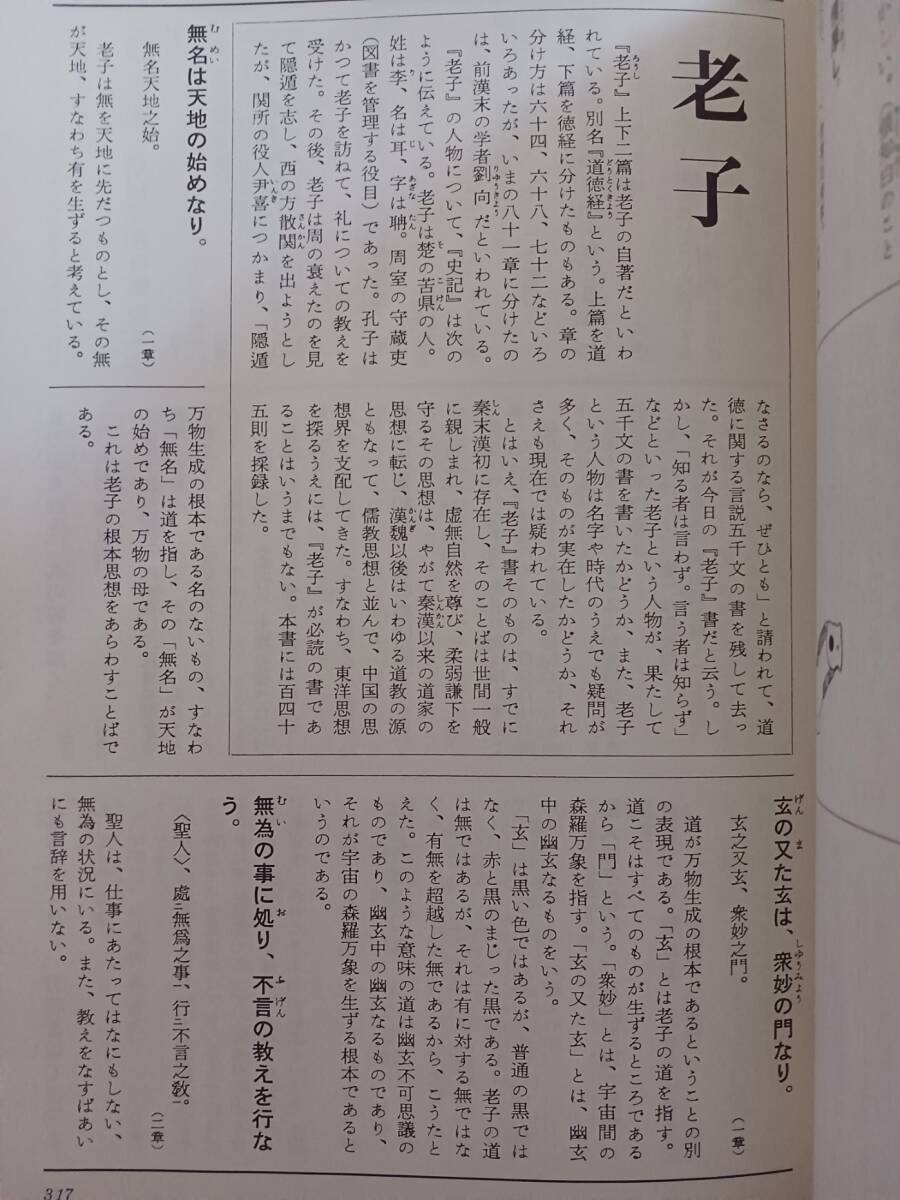 老子
『老子』上下二篇は老子の自著だといわ
れている。別名『道徳経』という。上篇を道
経、下篇を徳経に分けたものもある。章の
分け方は六十四、六十八、七十二などいろ
いろあったが、いまの八十一章に分けたの
は、前漢末の学者劉向だといわれている。
『老子』の人物について、『史記』は次の
ように伝えている。老子は楚の苦県の人。
姓は李、名は耳、字は聃。周室の守蔵吏
（図書を管理する役目）であった。孔子は
かつて老子を訪ねて、礼についての教えを
受けた。その後、老子は周の衰えたのを見
て隠遁を志し、西の方散関を出ようとし
たが、関所の役人尹喜につかまり、「隠遁
なさるのなら、ぜひとも」と請われて、道
徳に関する言説五千文の書を残して去っ
た。それが今日の『老子』書だと云う。し
かし、「知る者は言わず。言う者は知らず」
などといった老子という人物が、果たして
五千文の書を書いたかどうか、また、老子
という人物は名字や時代のうえでも疑問が
多く、そのものが実在したかどうか、それ
さえも現在では疑われている。
とはいえ、『老子』書そのものは、すでに
秦末漢初に存在し、そのことばは世間一般
に親しまれ、虚無自然を尊び、柔弱謙下を
守るその思想は、やがて秦漢以来の道家の
思想に転じ、漢魏以後はいわゆる道教の源
ともなって、儒教思想と並んで、中国の思
想界を支配してきた。すなわち、東洋思想
を探るうえには、『老子』が必読の書であ
ることはいうまでもない。本書には百四十
五則を採録した。
無名は天地の始めなり。
（一章）
無名天地之始。
老子は無を天地に先だつものとし、その無
が天地、すなわち有を生ずると考えている。
万物生成の根本である名のないもの、すなわ
ち「無名」は道を指し、その「無名」が天地
の始めであり、万物の母である。
これは老子の根本思想をあらわすことばで
ある。
玄の又た玄は、衆妙の門なり。
（一章）
玄之又玄、衆妙之門。
道が万物生成の根本であるということの別
の表現である。「玄」とは老子の道を指す。
道こそはすべてのものが生ずるところである
から「門」という。「衆妙」とは、宇宙間の
森羅万象を指す。「玄の又た玄」とは、幽玄
中の幽玄なるものをいう。
「玄」は黒い色ではあるが、普通の黒では
なく、赤と黒のまじった黒である。老子の道
は無ではあるが、それは有に対する無ではな
く、有無を超越した無であるから、こうたと
えた。このような意味の道は幽玄不可思議の
ものであり、幽玄中の幽玄なるものであり、
それが宇宙の森羅万象を生ずる根本であると
いうのである。
無為の事に処り、不言の教えを行な
う。
（二章）
〈聖人〉、處二無爲之事一、行二不言之教一。
聖人は、仕事にあたってはなにもしない、
無為の状況にいる。また、教えをなすばあい
にも言辞を用いない。
317